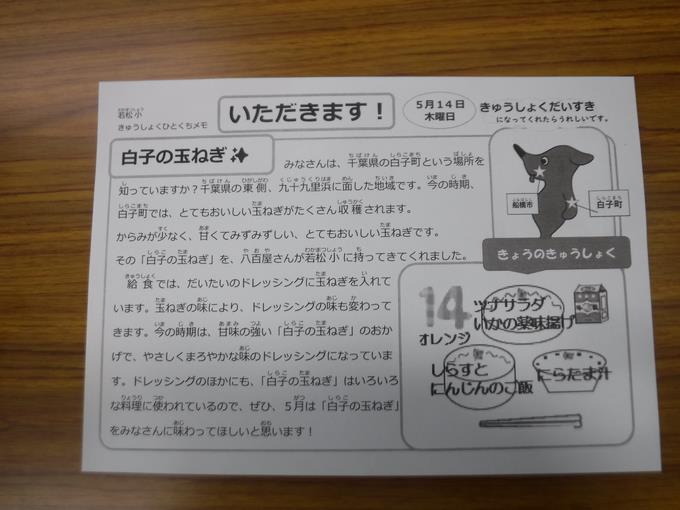 若松小
きゅうしょくひとくちメモ
いただきます！
５月１４日
木曜日
きゅうしょくだいすき
になってくれたらうれしいです。
白子の玉ねぎ
みなさんは、千葉県の白子町という場所を
知っていますか？千葉県の東側、九十九里浜に面した地域です。今の時期、
白子町では、とてもおいしい玉ねぎがたくさん収穫されます。
からみが少なく、甘くてみずみずしい、とてもおいしい玉ねぎです。
その「白子の玉ねぎ」を、八百屋さんが若松小に持ってきてくれました。
給食では、だいたいのドレッシングに玉ねぎを入れて
います。玉ねぎの味により、ドレッシングの味も変わって
きます。今の時期は、甘味の強い「白子の玉ねぎ」のおか
げで、やさしくまろやかな味のドレッシングになっていま
す。ドレッシングのほかにも、「白子の玉ねぎ」はいろいろ
な料理に使われているので、ぜひ、５月は「白子の玉ねぎ」
をみなさんに味わってほしいと思います！
船橋市
白子町
きょうのきゅうしょく
14
ツナサラダ
いかの薬味揚げ
オレンジ
しらすと
にんじんのご飯
にらたま汁